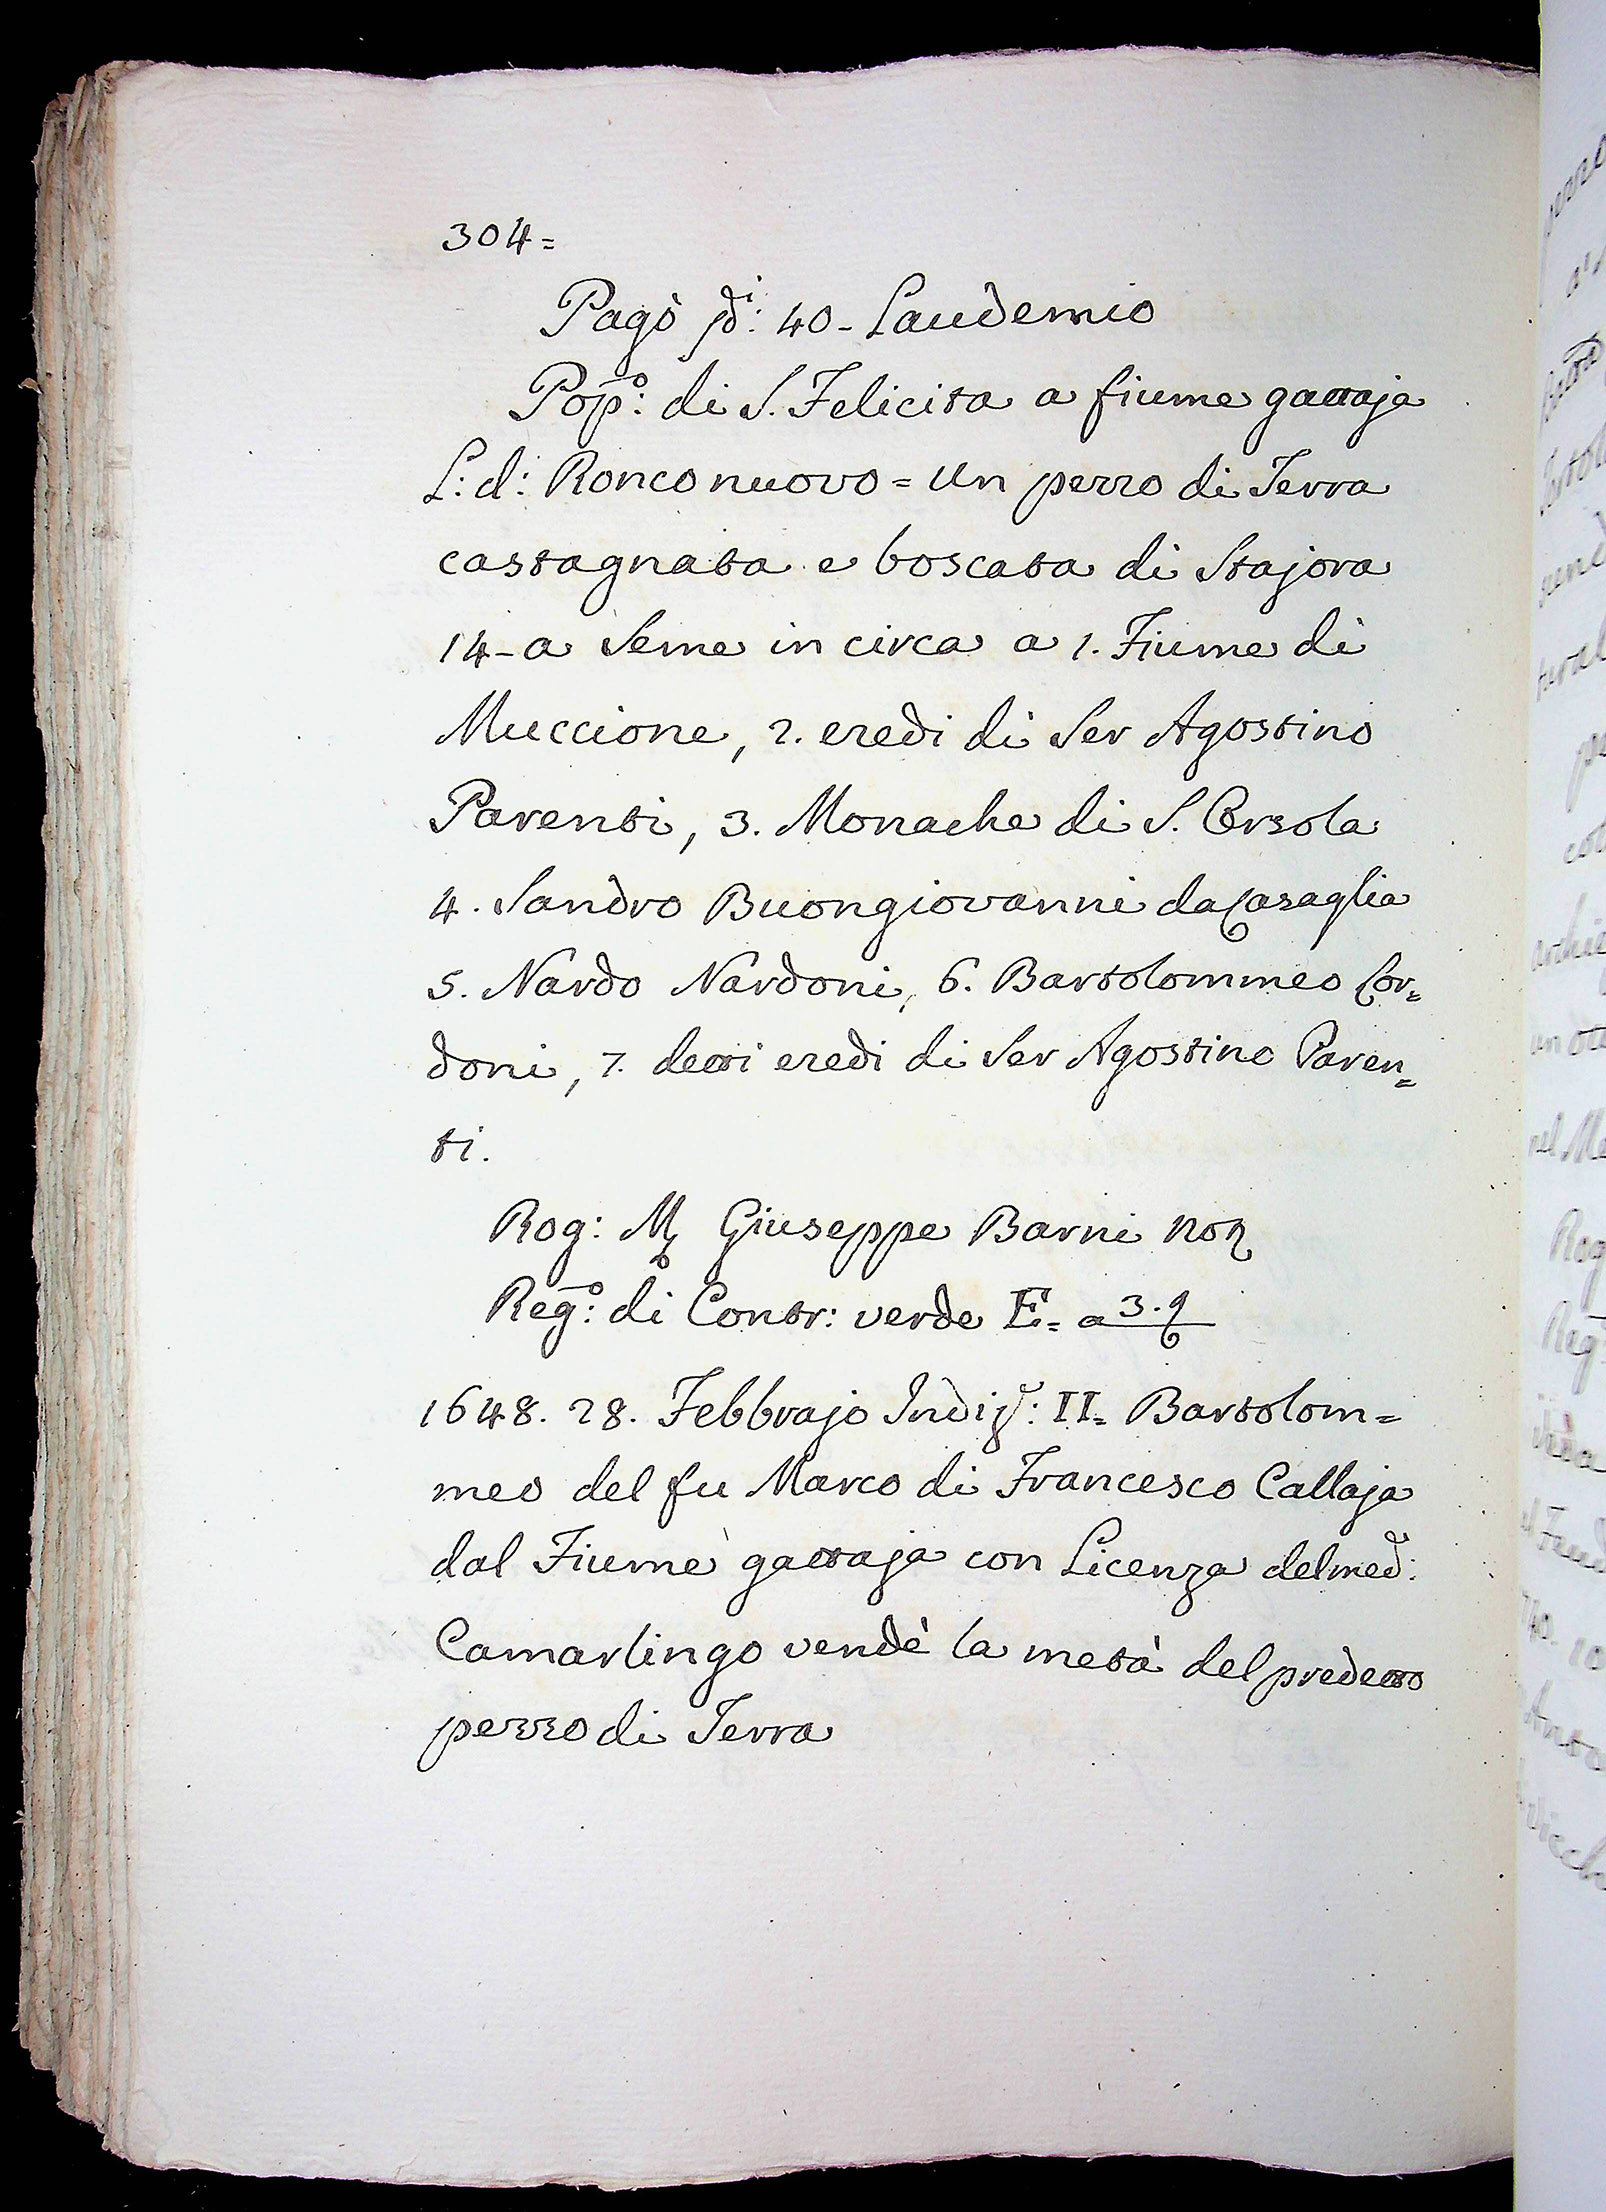 304=
Pagò 40- Laudemio
Pop̃o: di S. Felicita a fiume gattaja
L: d: Ronco nuovo = Un pezzo di Terra
castagnata e boscata di Stajora
14- a Seme in circa a 1. Fiume di
Muccione, 2. eredi di Ser Agostino
Parenti, 3. Monache di S. Orsola
4. Sandro Buongiovanni da Casaglia
5. Nardo Nardoni, 6. Bartolommeo Cor=
doni, 7. detti eredi di Ser Agostino Paren=
ti.
Rog: Giuseppe Barni
Reg̃o: di Contr: verde E= a 3.
1648. 28. Febbrajo II= Bartolom=
meo del fu Marco di Francesco Callaja
dal Fiume gattaja con Licenza del med:
Camarlingo vendè la metà del predetto
pezzo di Terra